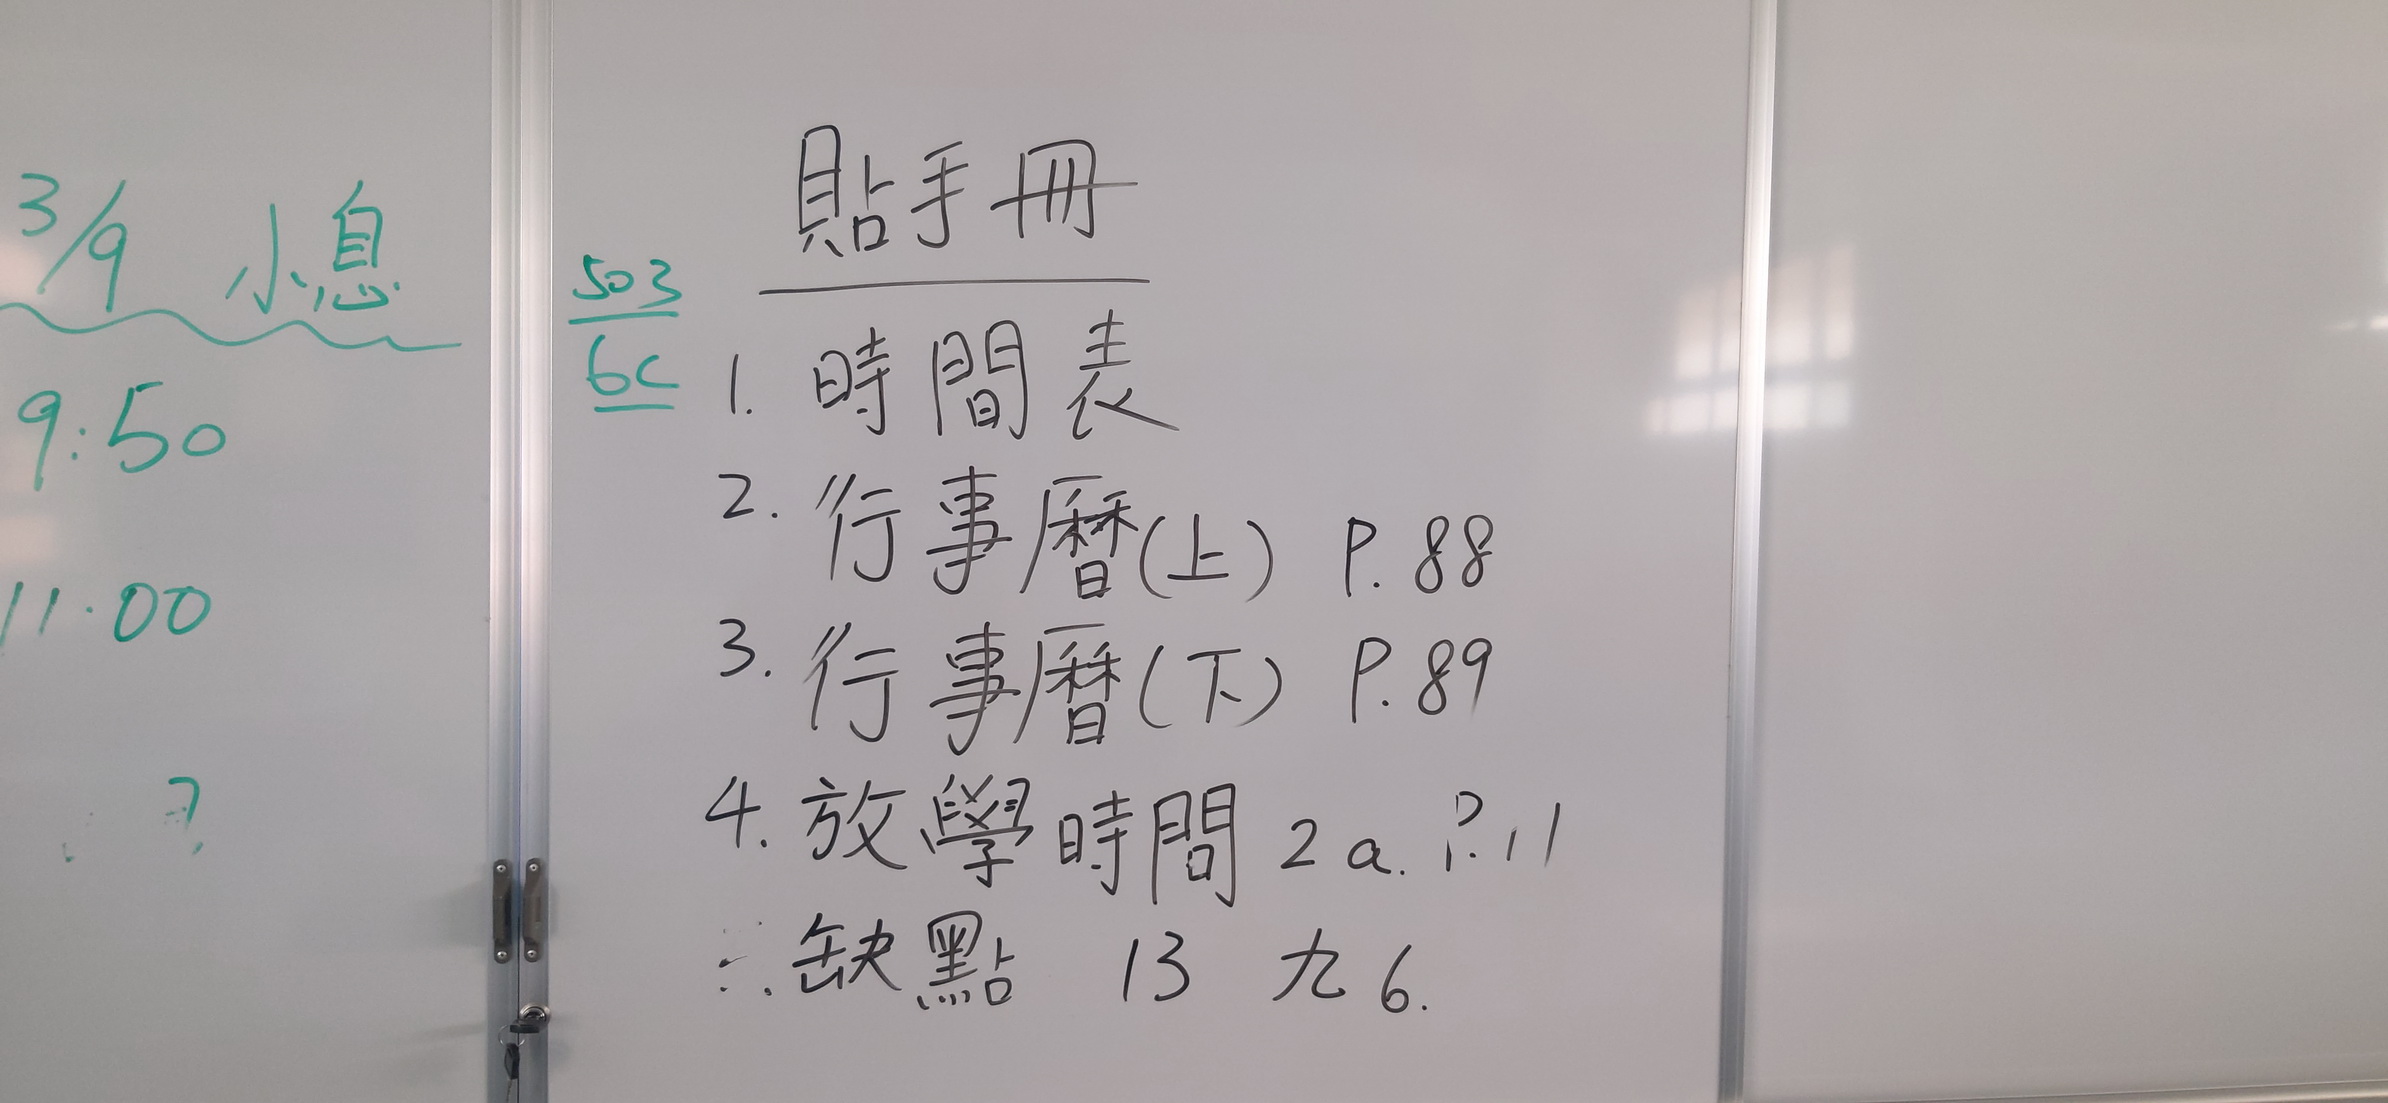 3/9 小息
9:50
11:00
503
6C
貼手冊
1. 時間表
2. 行事曆(上) P.88
3. 行事曆(下) P.89
4. 放學時間 2a. P.11
缺點 13 九 6.